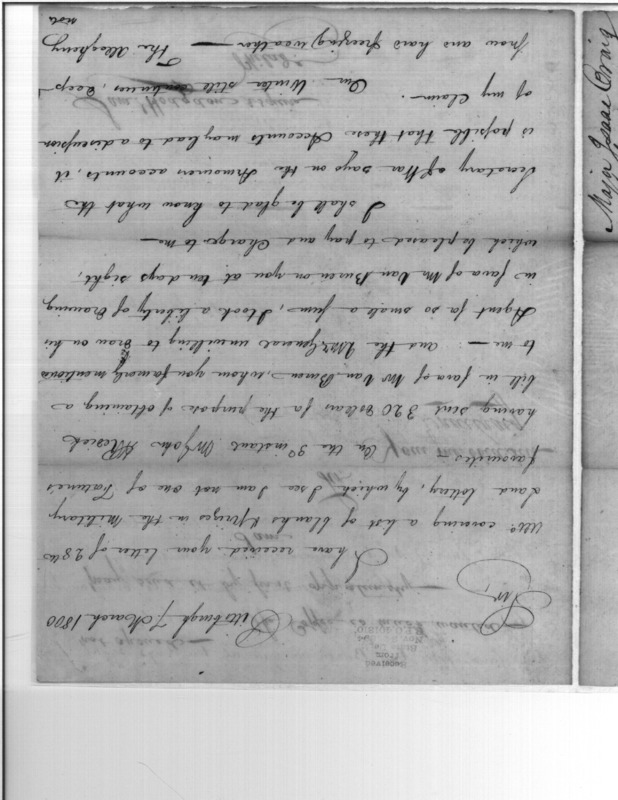 Pittsburgh 7 March 1800
Sir,
I have received your letter of 28th
Ulto covering a list of blanks & prizes in the Military
Land lottery, by which I see I am not one of Fortune's
favourites — On the 3d instant Mr John
having sent 320 dollars for the purpose of obtaining a
bill in favor of Mr Van Buren, whom you formerly mentioned
to me — and the General unwilling to draw on his
Agent for so small a sum, I took a liberty of drawing
in favor of Mr Van Buren on you at ten days sight,
which be pleased to pay and Charge to me —
I shall be glad to know what the
Secretary of War says on the Armourers accounts, it
is possible that these Accounts may lead to a discussion
of my Claim. Our Winter still continues, deep
snow and hard freezing weather — The Allegheny
not
Received
from
Nov.
Major Isaac Craig